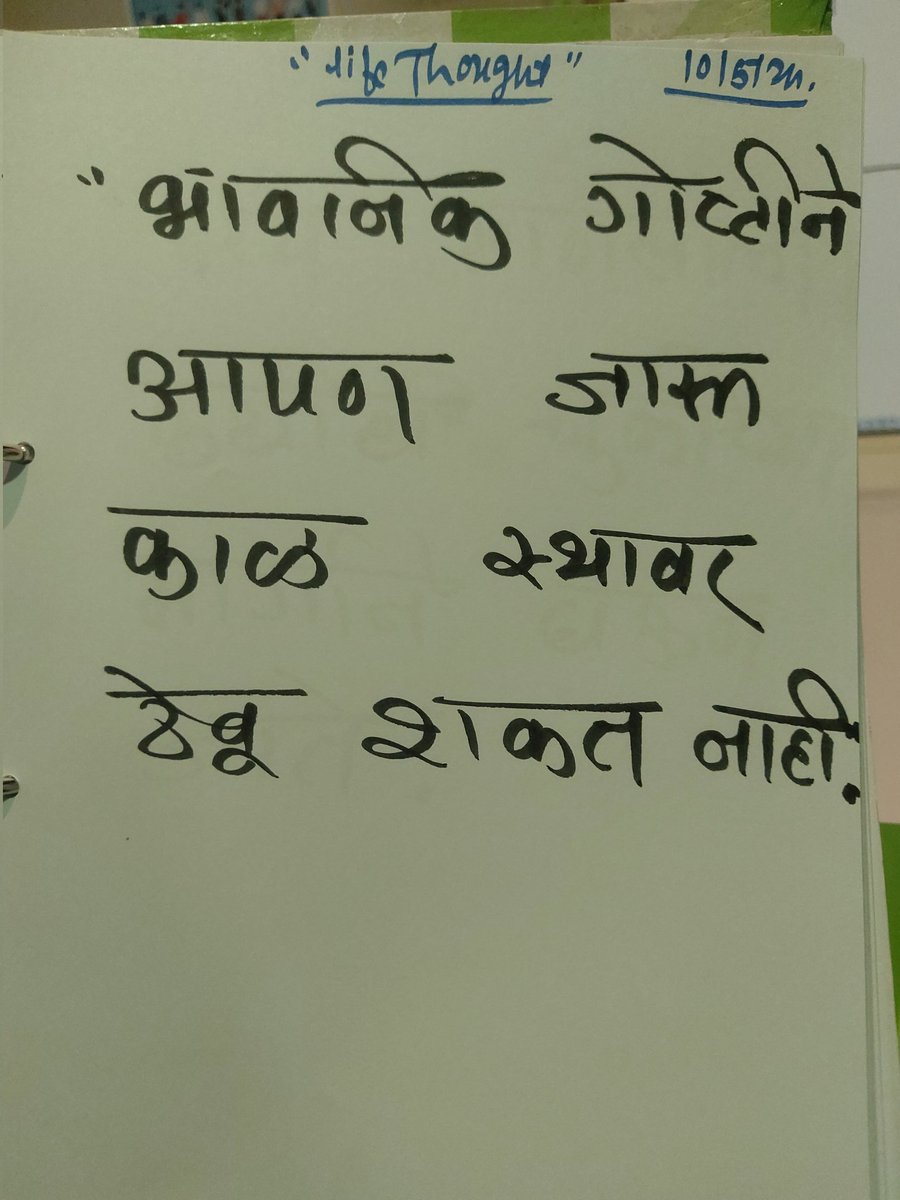 "Life Thought" 10/5/21.
"भावनिक गोष्टीने
आपण जास्त
काळ स्थावर
ठेवू शकत नाही.